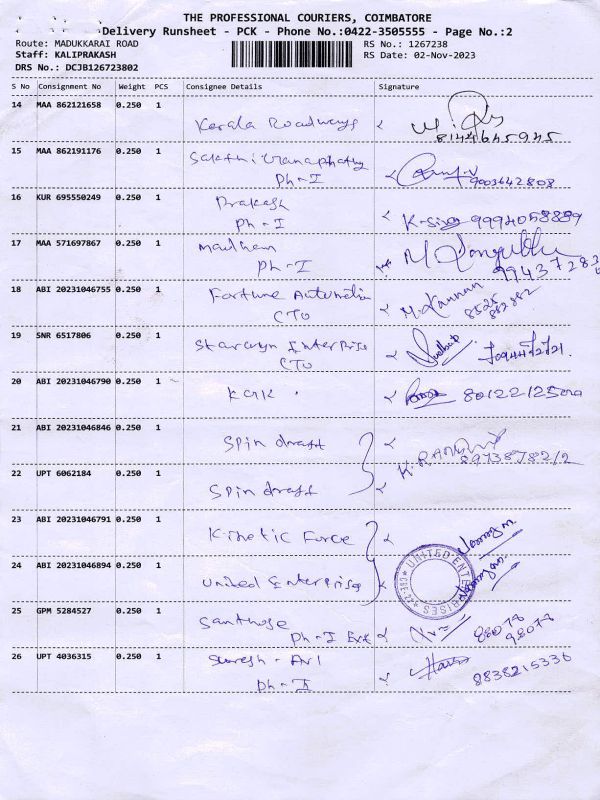 THE PROFESSIONAL COURIERS, COIMBATORE
Delivery Runsheet - PCK - Phone No.:0422-3505555 - Page No.:2
Route: MADUKKARAI ROAD RS No.: 1267238
Staff: KALIPRAKASH RS Date: 02-Nov-2023
DRS No.: DCJB126723802
S No Consignment No Weight PCS Consignee Details Signature
14 MAA 862121658 0.250 1
Kerala Roadways
8144645945
15 MAA 862191176 0.250 1
Ph-I 9003642808
16 KUR 695550249 0.250 1
Prakash
Ph-I 9994058889
17 MAA 571697867 0.250 1
Ph-I
18 ABI 20231046755 0.250 1
Fortune Automation M. Kannan
CTO 8525
882882
19 SNR 6517806 0.250 1
Enterprise
CTO
20 ABI 20231046790 0.250 1
21 ABI 20231046846 0.250 1
Spin draft
22 UPT 6062184 0.250 1
Spin draft
23 ABI 20231046791 0.250 1
Kinetic Force
24 ABI 20231046894 0.250 1
United Enterprise UNITED ENTERPRISES
25 GPM 5284527 0.250 1
Santhose
Ph-I Ext
26 UPT 4036315 0.250 1
Suresh-
Ph-II 8838215336